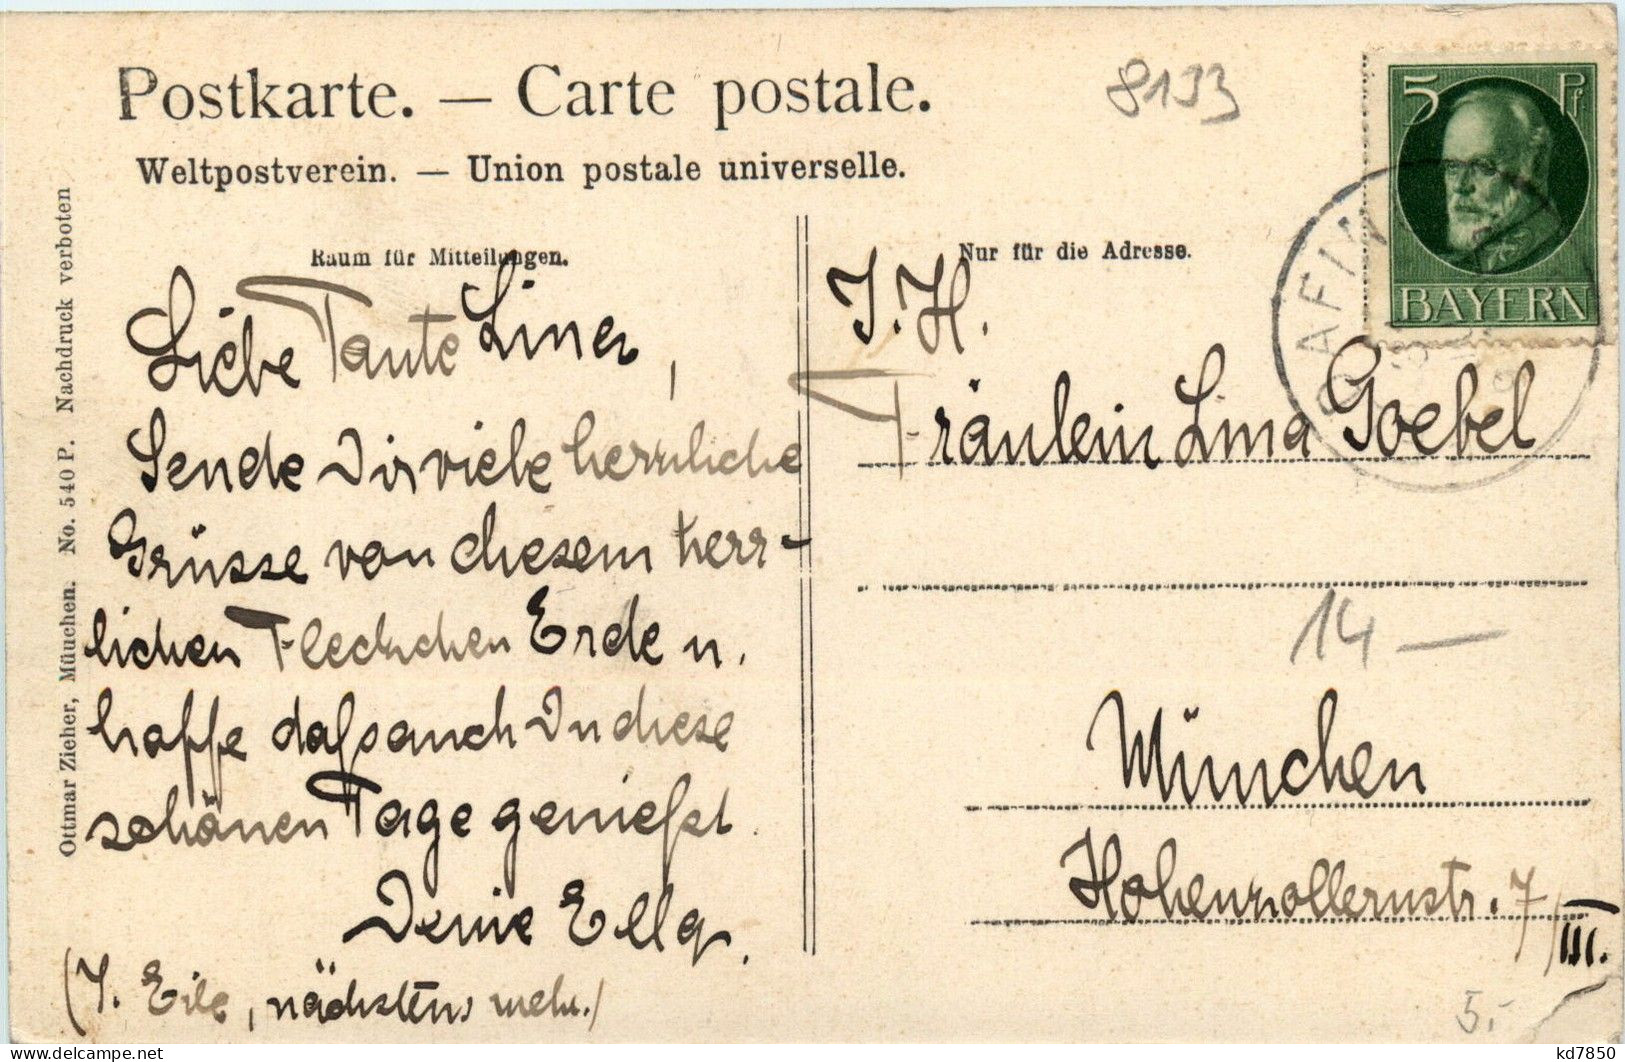 Postkarte. — Carte postale.
Weltpostverein. — Union postale universelle.
8133
5 Pf
BAYERN
Raum für Mitteilungen.
Nur für die Adresse.
Liebe Tante Lina,
Sende Dir viele herzliche
Grüsse von diesem herr-
lichen Fleckchen Erde u.
hoffe dass auch Du diese
schönen Tage genießst.
Deine Ella.
(I. Eile, nächstens mehr.)
I. H.
Fräulein Lina Goebel
14 —
München
Hohenzollernstr. 7/III.
5.-
Ottmar Zieher, München. No. 540 P. Nachdruck verboten
kd7850